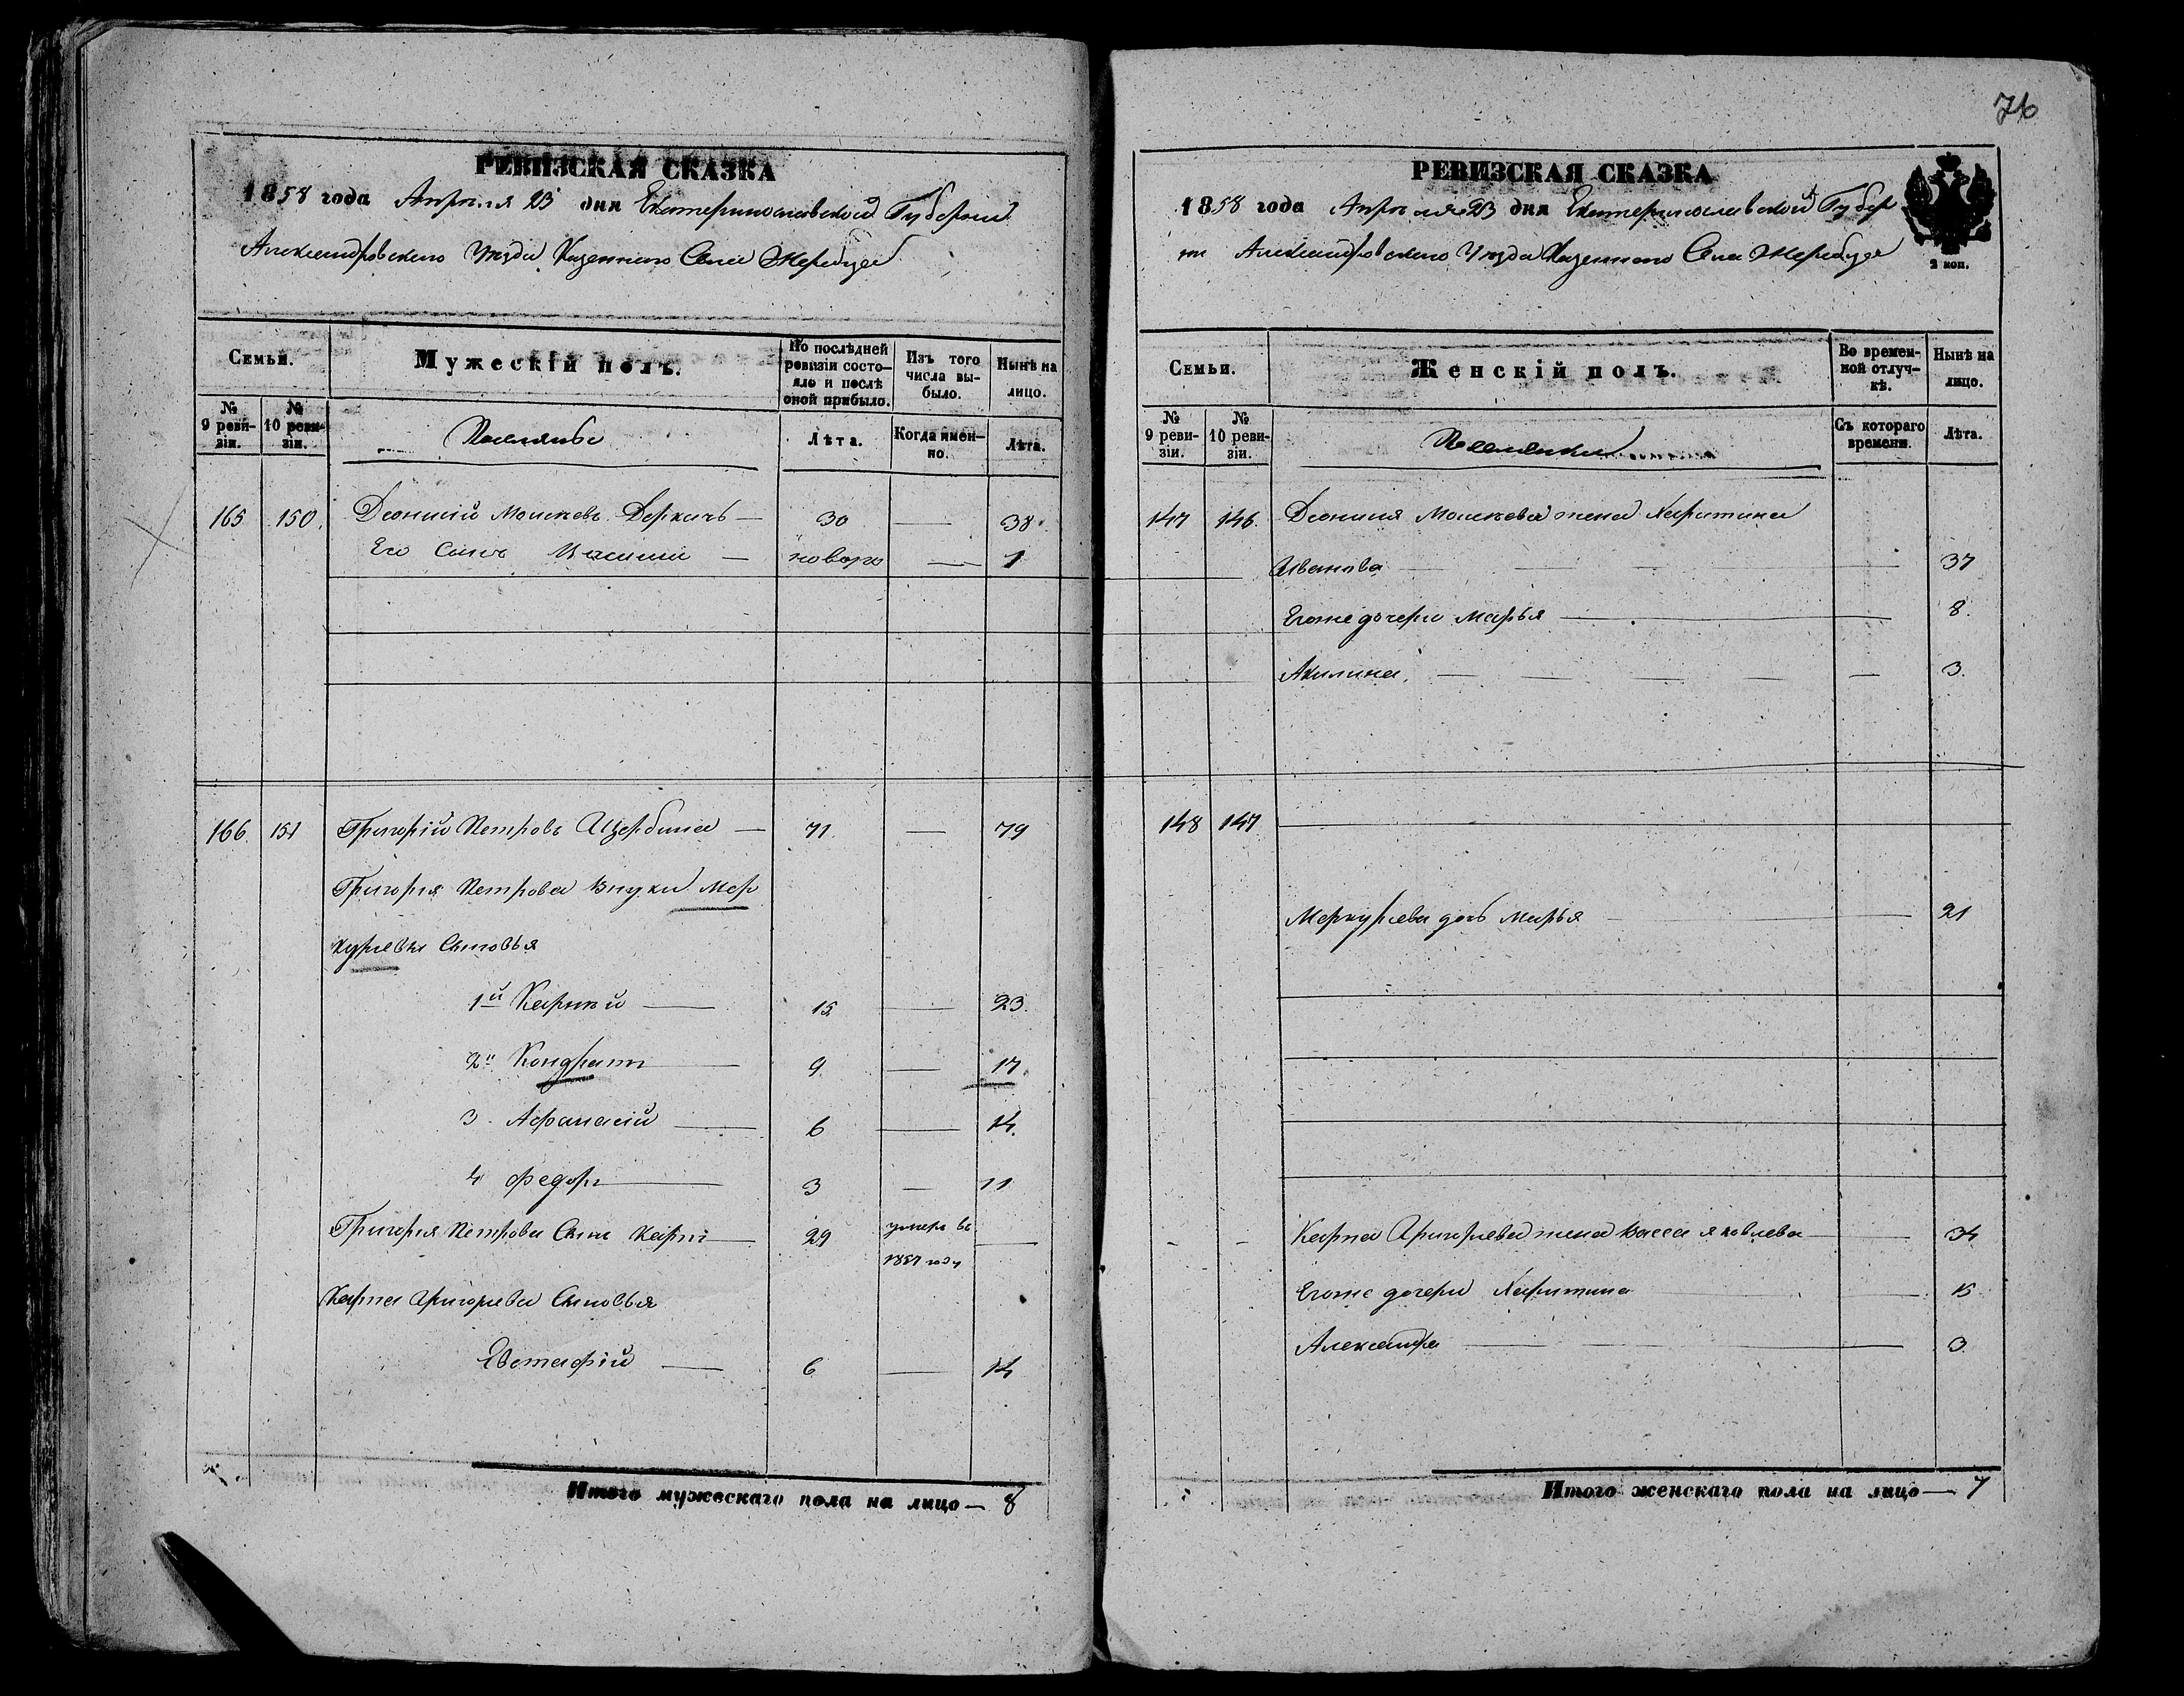 РЕВИЗСКАЯ СКАЗКА
1858 года Апреля 23 дня Екатеринославской Губернии
Александровского Уезда Казенного Села Жеребца
Семьи.
Мужескій полъ.
По послѣдней ревизіи состояло и послѣ оной прибыло.
Изъ того числа выбыло.
Нынѣ на лицо.
№ 9 ревизіи.
№ 10 ревизіи.
Поселяне
Лѣта.
Когда именно.
Лѣта.
165 150. Деонисій Моисеевъ Деркачъ — 30 — 38.
Его Сынъ — новоро — 1
166. 151 Григорій Петровъ Щербина — 71. — 79
Григорія Петрова Внуки Мер
курiевы Сыновья
1й Карпъ — 15 — 23.
2й Кондратъ — 9 — 17.
3. Афанасій — 6 — 14.
4 Федоръ — 3 — 11
Григорія Петрова Сынъ Карпъ — 29 умеръ въ —
1857 году
Карпа Григорьева Сыновья
Евстафій — 6 — 14
Итого мужескаго пола на лицо — 8
76
РЕВИЗСКАЯ СКАЗКА
1858 года Апреля 23 дня Екатеринославской Губер
нии Александровского Уезда Казенного Села Жеребца
2 коп.
Семьи.
Женскій полъ.
Во временной отлучкѣ.
Нынѣ на лицо.
№ 9 ревизіи.
№ 10 ревизіи.
Поселянки
Съ котораго времени.
Лѣта.
147 146. Деонисия Моисеева жена Харитина
Иванова — — 37
Егоже дочери Марья — — 8.
Акилина. — — 3.
148 147
Меркурiева дочь Марья — — 21
Карпа Григорьева жена Васса Яковлева — — 34
Егоже дочери Харитина — — 15
Александра — — 3
Итого женскаго пола на лицо — 7